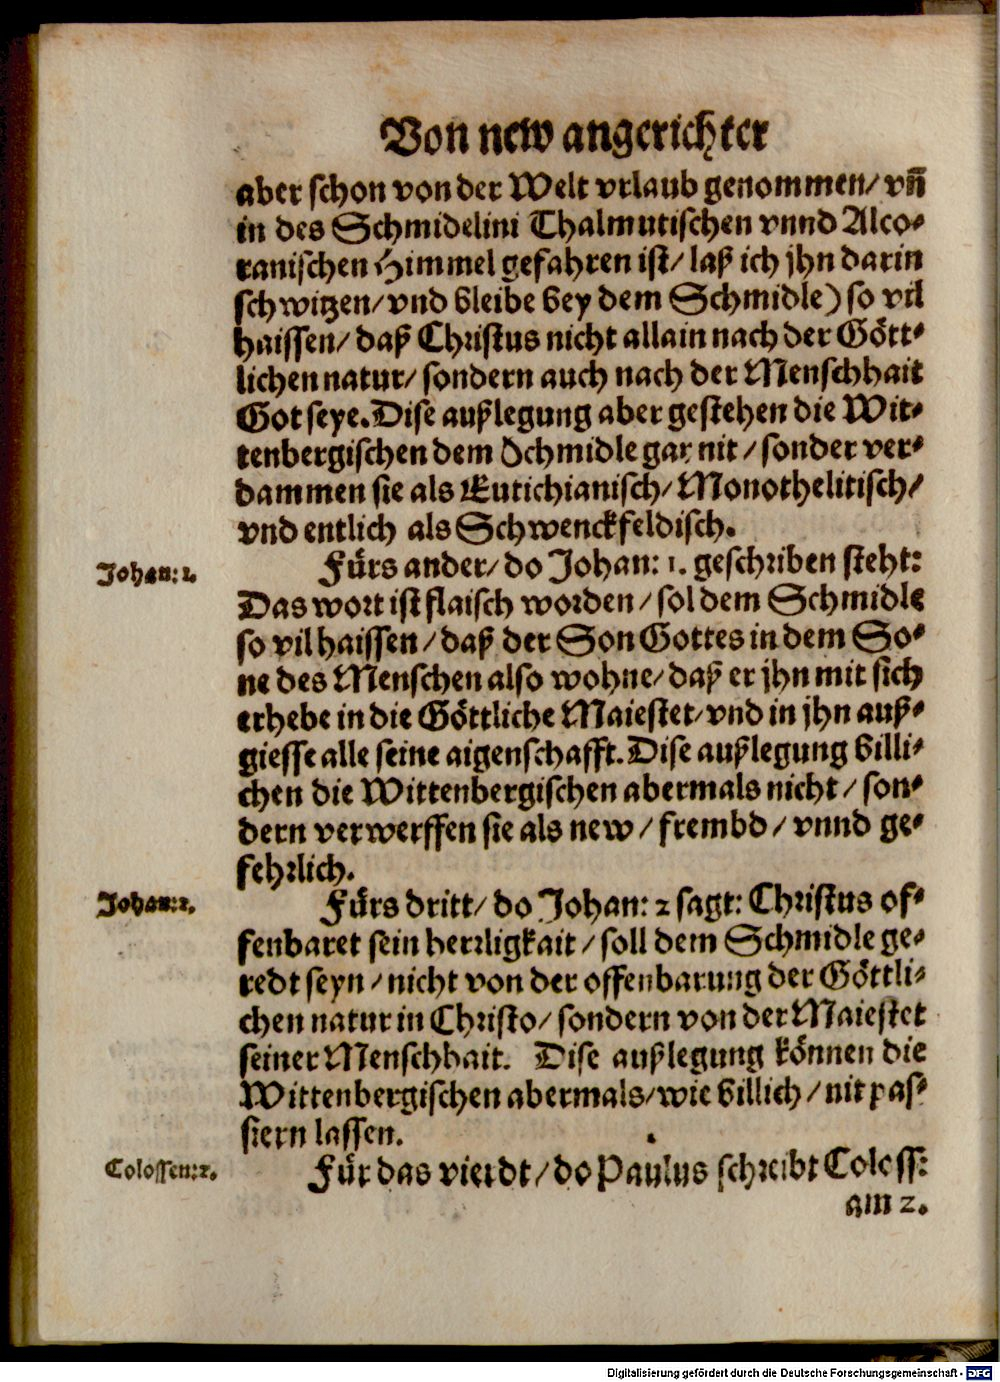 Von new angerichter
aber schon von der Welt vrlaub genommen/ vn̄
in des Schmidelini Thalmutischen vnnd Alco-
ranischen Himmel gefahren ist/ laß ich jhn darin
schwitzen/ vnd bleibe bey dem Schmidle) so vil
haissen/ daß Christus nicht allain nach der Gött-
lichen natur/ sondern auch nach der Menschhait
Got seye. Dise außlegung aber gestehen die Wit-
tenbergischen dem Schmidle gar nit/ sonder ver-
dammen sie als Eutichianisch/ Monothelitisch/
vnd entlich als Schwenckfeldisch.
Johan: 1.
Fürs ander/ do Johan: 1. geschriben steht:
Das wort ist flaisch worden/ sol dem Schmidle
so vil haissen/ daß der Son Gottes in dem So-
ne des Menschen also wohne/ daß er jhn mit sich
erhebe in die Göttliche Maiestet/ vnd in jhn auß-
giesse alle seine aigenschafft. Dise außlegung billi-
chen die Wittenbergischen abermals nicht/ son-
dern verwerffen sie als new/ frembd/ vnnd ge-
fehrlich.
Johan: 2.
Fürs dritt/ do Johan: 2 sagt: Christus of-
fenbaret sein herrligkait/ soll dem Schmidle ge-
redt seyn/ nicht von der offenbarung der Göttli-
chen natur in Christo/ sondern von der Maiestet
seiner Menschhait. Dise außlegung können die
Wittenbergischen abermals/ wie billich/ nit pas-
siern lassen.
Colossen: 2.
Für das vierdt/ do Paulus schreibt Coloss:
am 2.
Digitalisierung gefördert durch die Deutsche Forschungsgemeinschaft - DFG